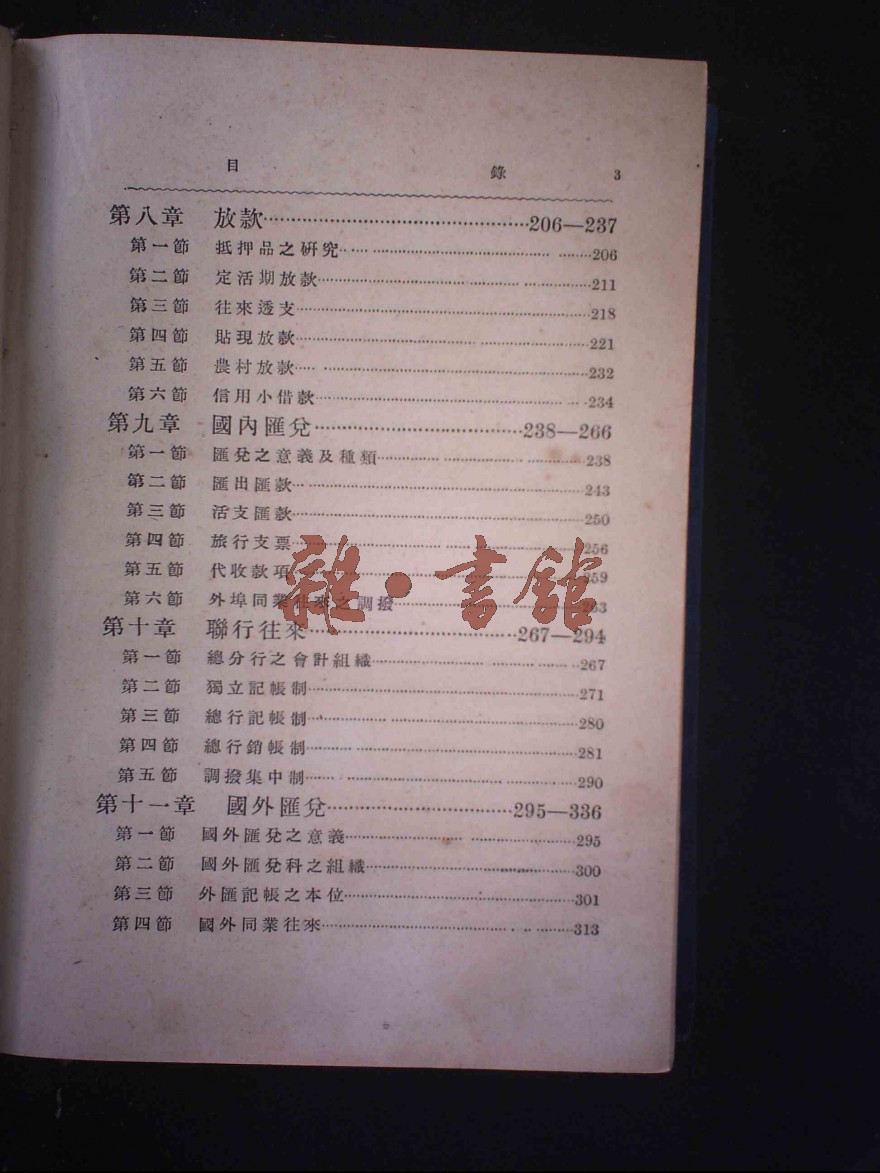 目 錄 3
第八章 放款 206—237
第一節 抵押品之研究 206
第二節 定活期放款 211
第三節 往來透支 218
第四節 貼現放款 221
第五節 農村放款 232
第六節 信用小借款 234
第九章 國內匯兌 238—266
第一節 匯兌之意義及種類 238
第二節 匯出匯款 243
第三節 活支匯款 250
第四節 旅行支票 256
第五節 代收款項 259
第六節 外埠同業往來之調撥 263
雜·書館
第十章 聯行往來 267—294
第一節 總分行之會計組織 267
第二節 獨立記帳制 271
第三節 總行記帳制 280
第四節 總行銷帳制 281
第五節 調撥集中制 290
第十一章 國外匯兌 295—336
第一節 國外匯兌之意義 295
第二節 國外匯兌科之組織 300
第三節 外匯記帳之本位 301
第四節 國外同業往來 313